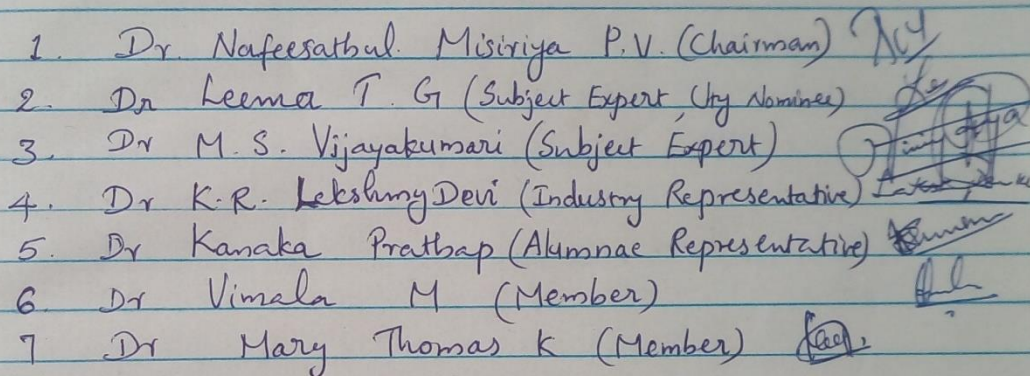 1. Dr. Nafeesathul. Misiriya P.V. (Chairman)
2. Dr Leema T. G (Subject Expert, Uty Nominee)
3. Dr M. S. Vijayakumari (Subject Expert)
4. Dr K.R. Lekshmy Devi (Industry Representative)
5. Dr Kanaka Prathap (Alumnae Representative)
6 Dr Vimala M (Member)
7 Dr Mary Thomas K (Member)